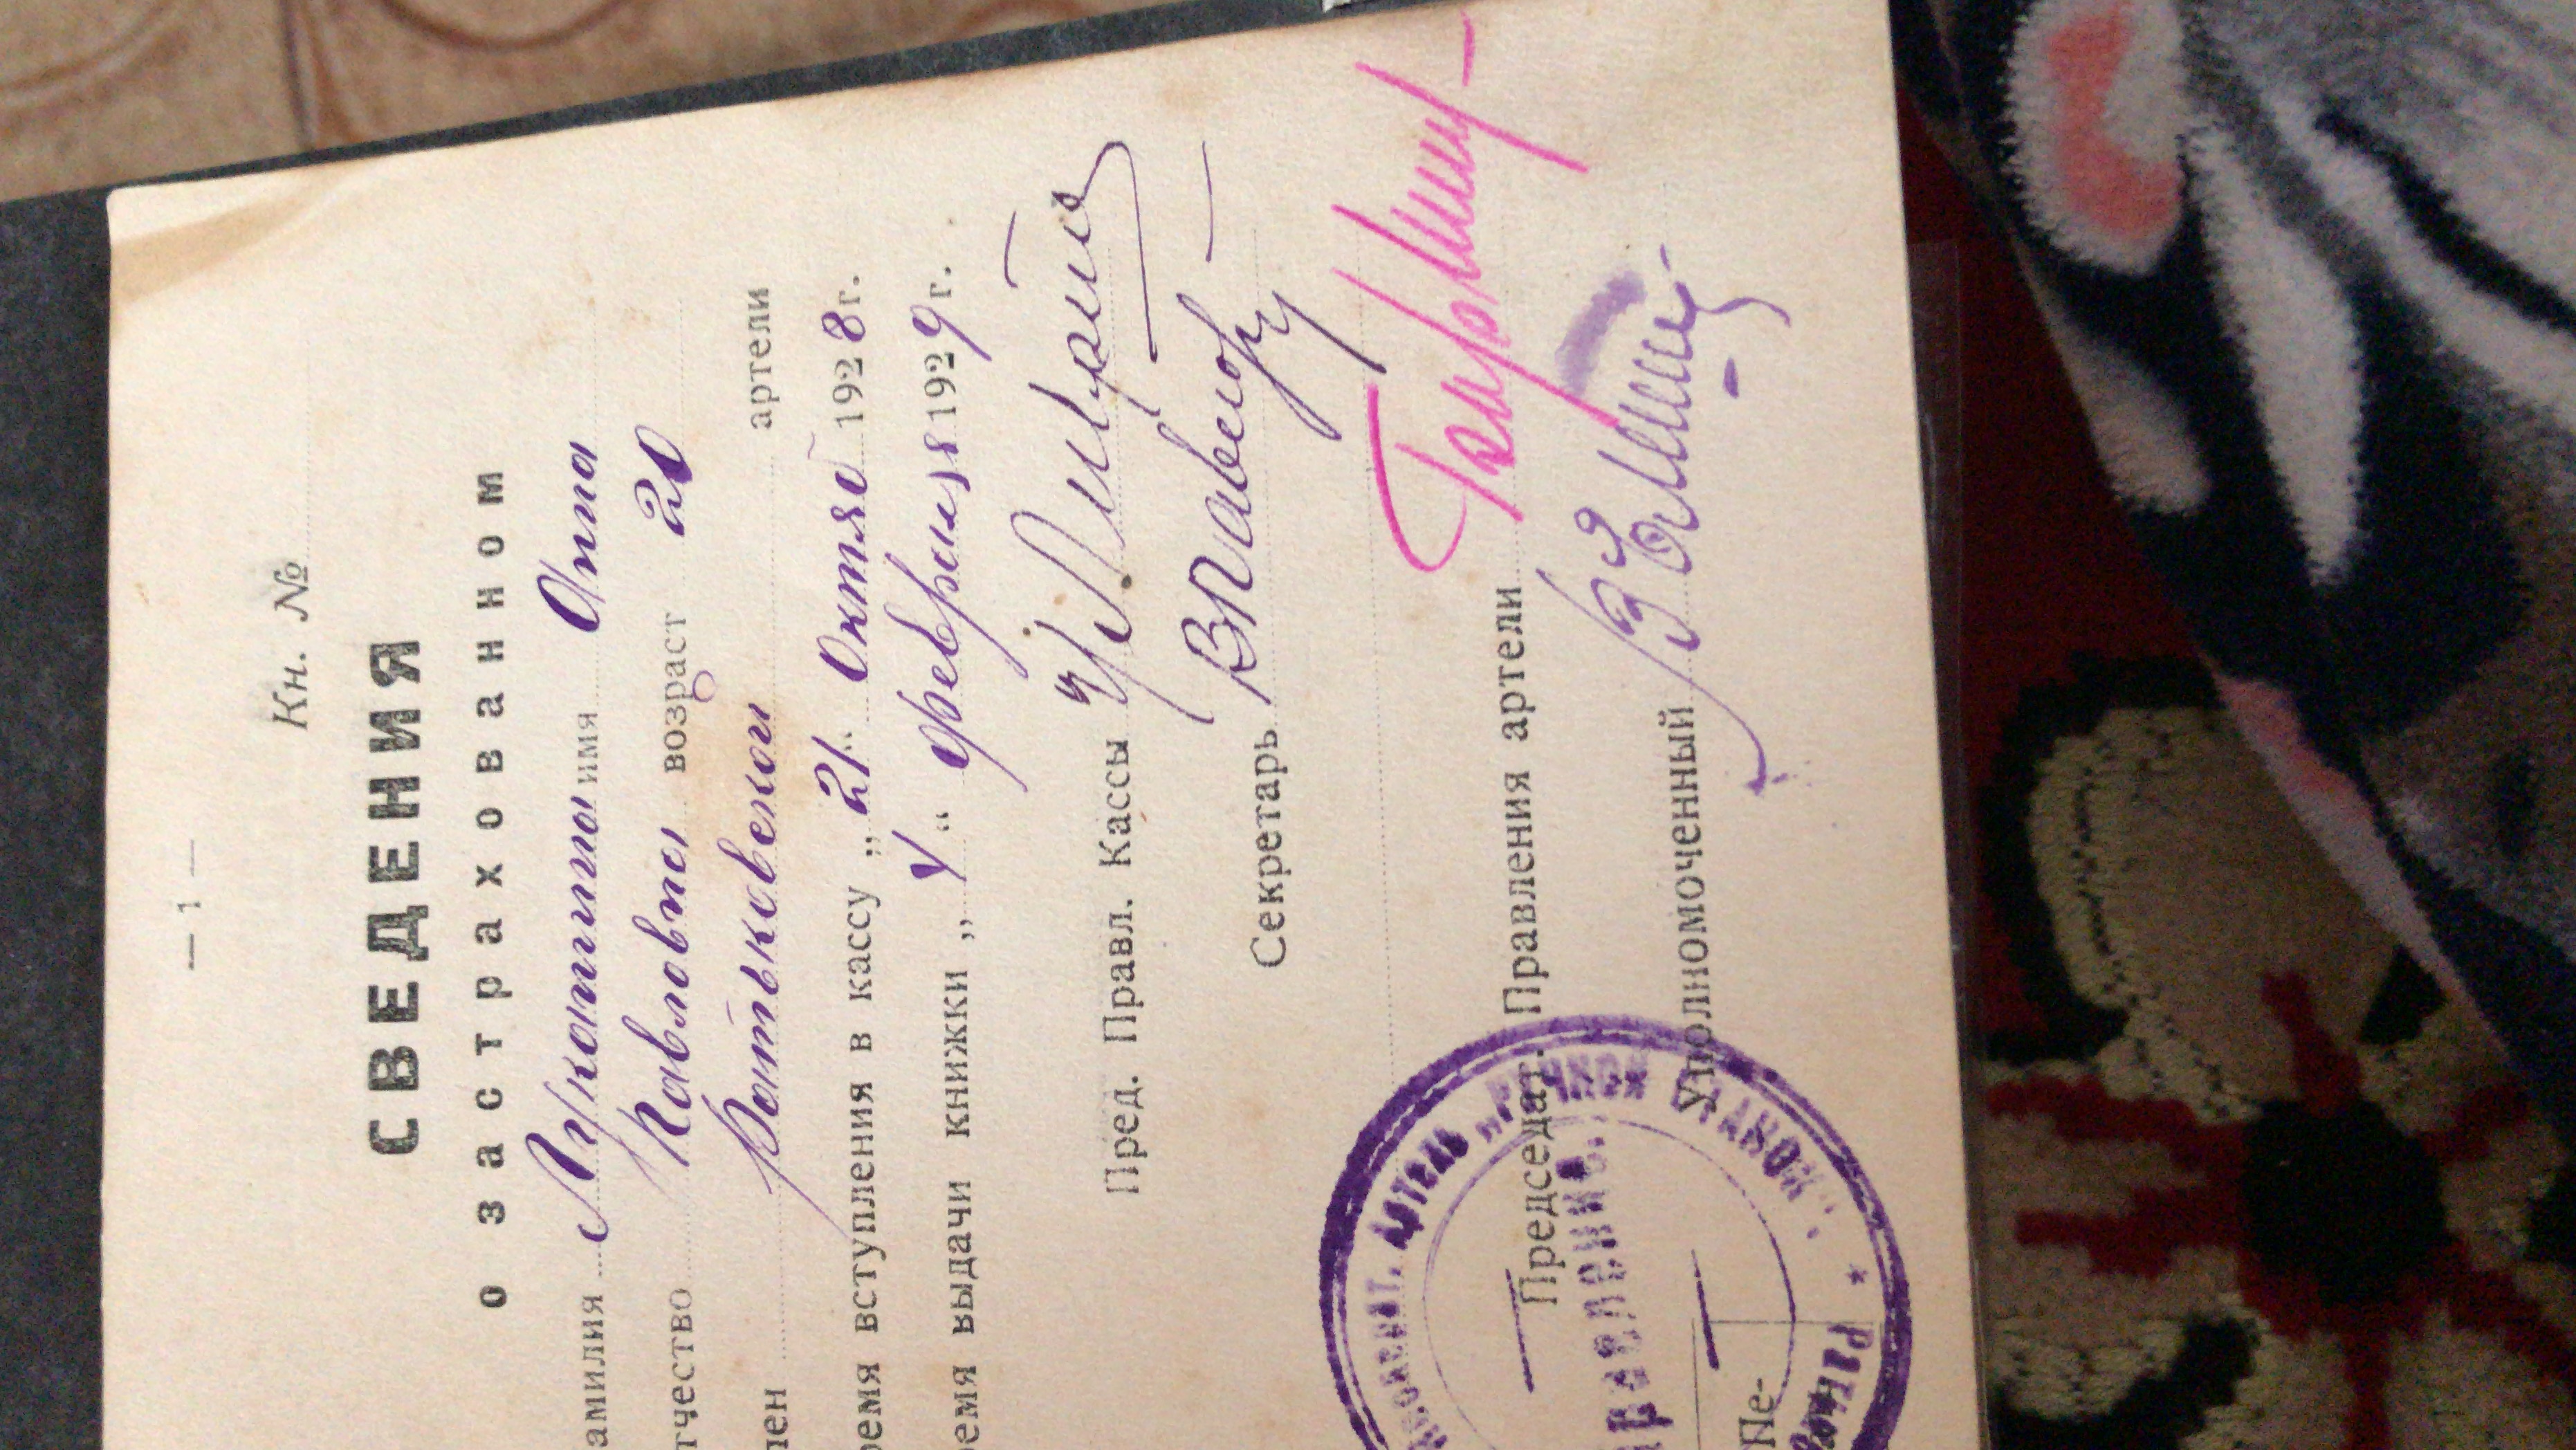 — 1 —
Кн. №
СВЕДЕНИЯ
о застрахованном
амилия Лукатина имя Анна
тчество Павловна возраст 20
лен Ратьковской артели
ремя вступления в кассу „21“ Октяб 1928 г.
ремя выдачи книжки „4“ февраля 1929 г.
Пред. Правл. Кассы
Секретарь
Председат. Правления артели
Уполномоченный
Артель
равление.
Пе-